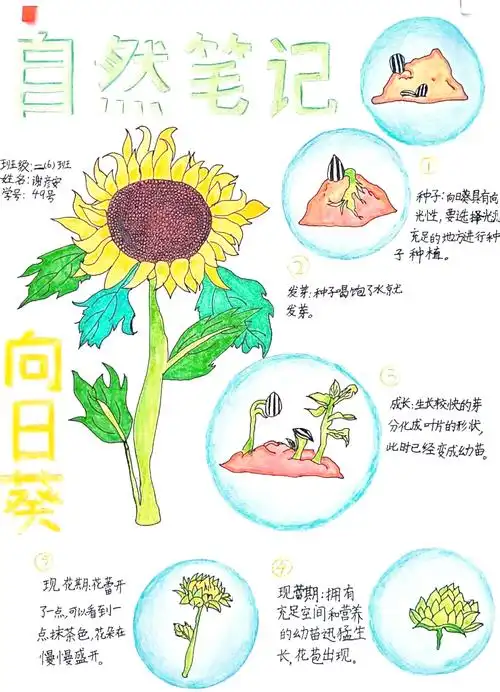 自然笔记
班级:二(6)班
姓名:谢彦安
学号:49号
向日葵
①
种子:向日葵具有向
光性,要选择光
充足的地方进行种
子种植。
②
发芽:种子喝饱了水就
发芽。
③
成长:生长较快的芽
分化成叶片的形状,
此时已经变成幼苗。
④
现蕾期:拥有
充足空间和营养
的幼苗迅猛生
长,花苞出现。
现花期:花蕾开
了一点,可以看到一
点抹茶色,花朵在
慢慢盛开。